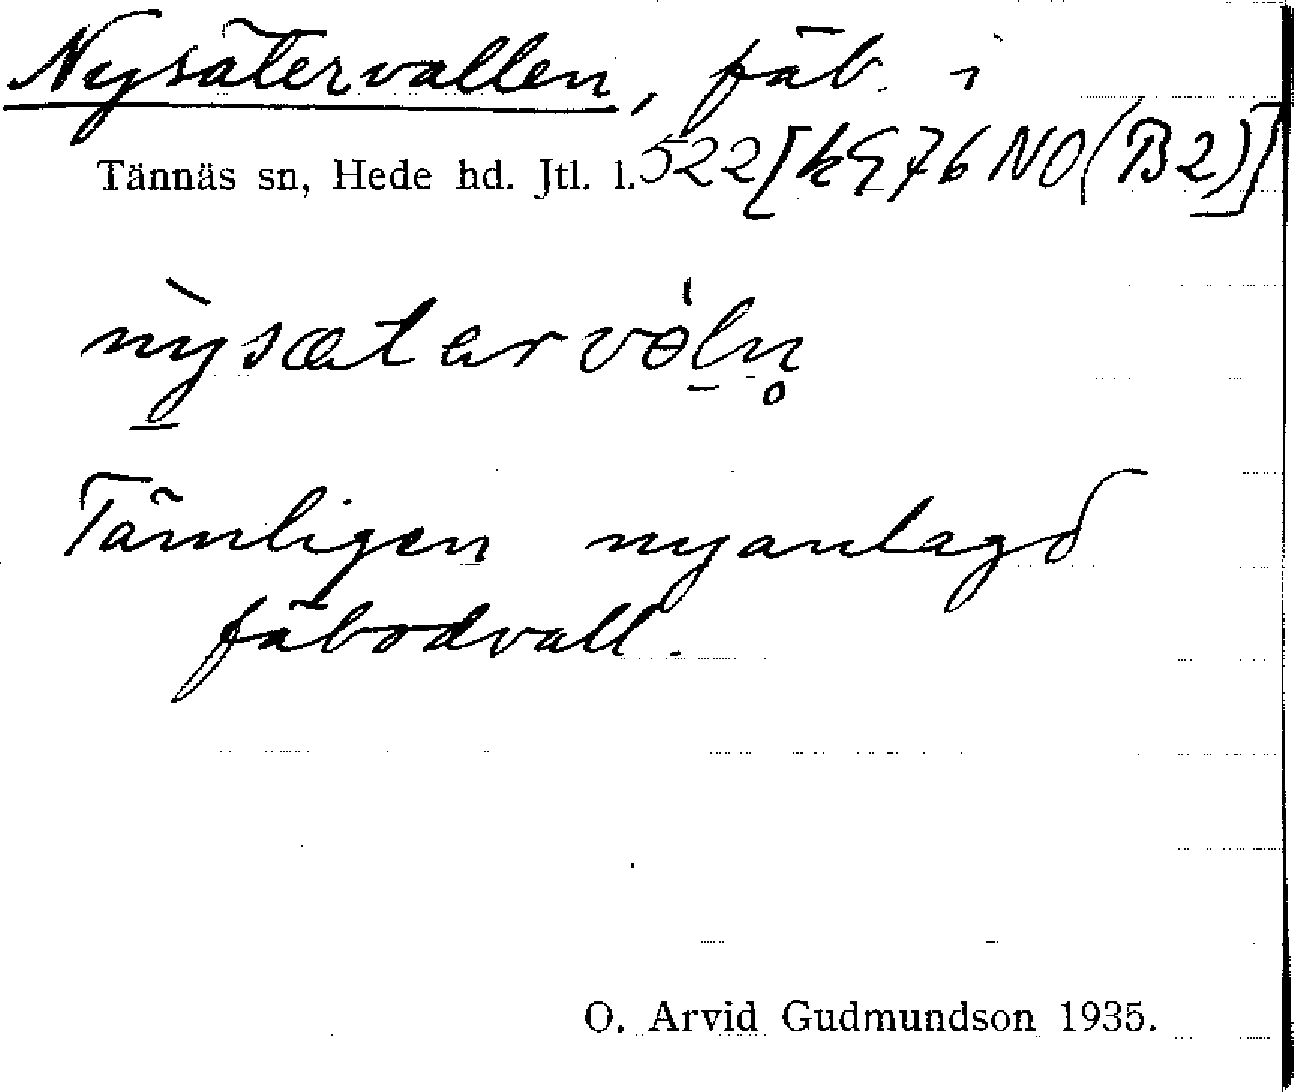 Nysätervallen, fäb. i
Tännäs sn, Hede hd. Jtl. l. 522 [kG 76 NO (B2)]
nỳsætarvö́ln̥
Tämligen nyanlagd
fäbodvall.
O. Arvid Gudmundson 1935.